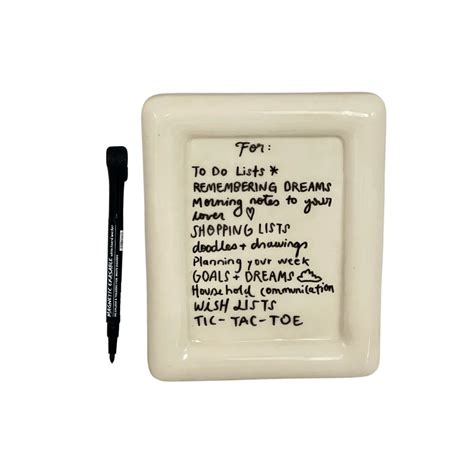 For:
To Do Lists *
REMEMBERING DREAMS
Morning notes to your
lover ♡
SHOPPING LISTS
doodles + drawings
Planning your week
GOALS + DREAMS
Household communication
WISH LISTS
TIC-TAC-TOE
MAGNETIC ERASABLE